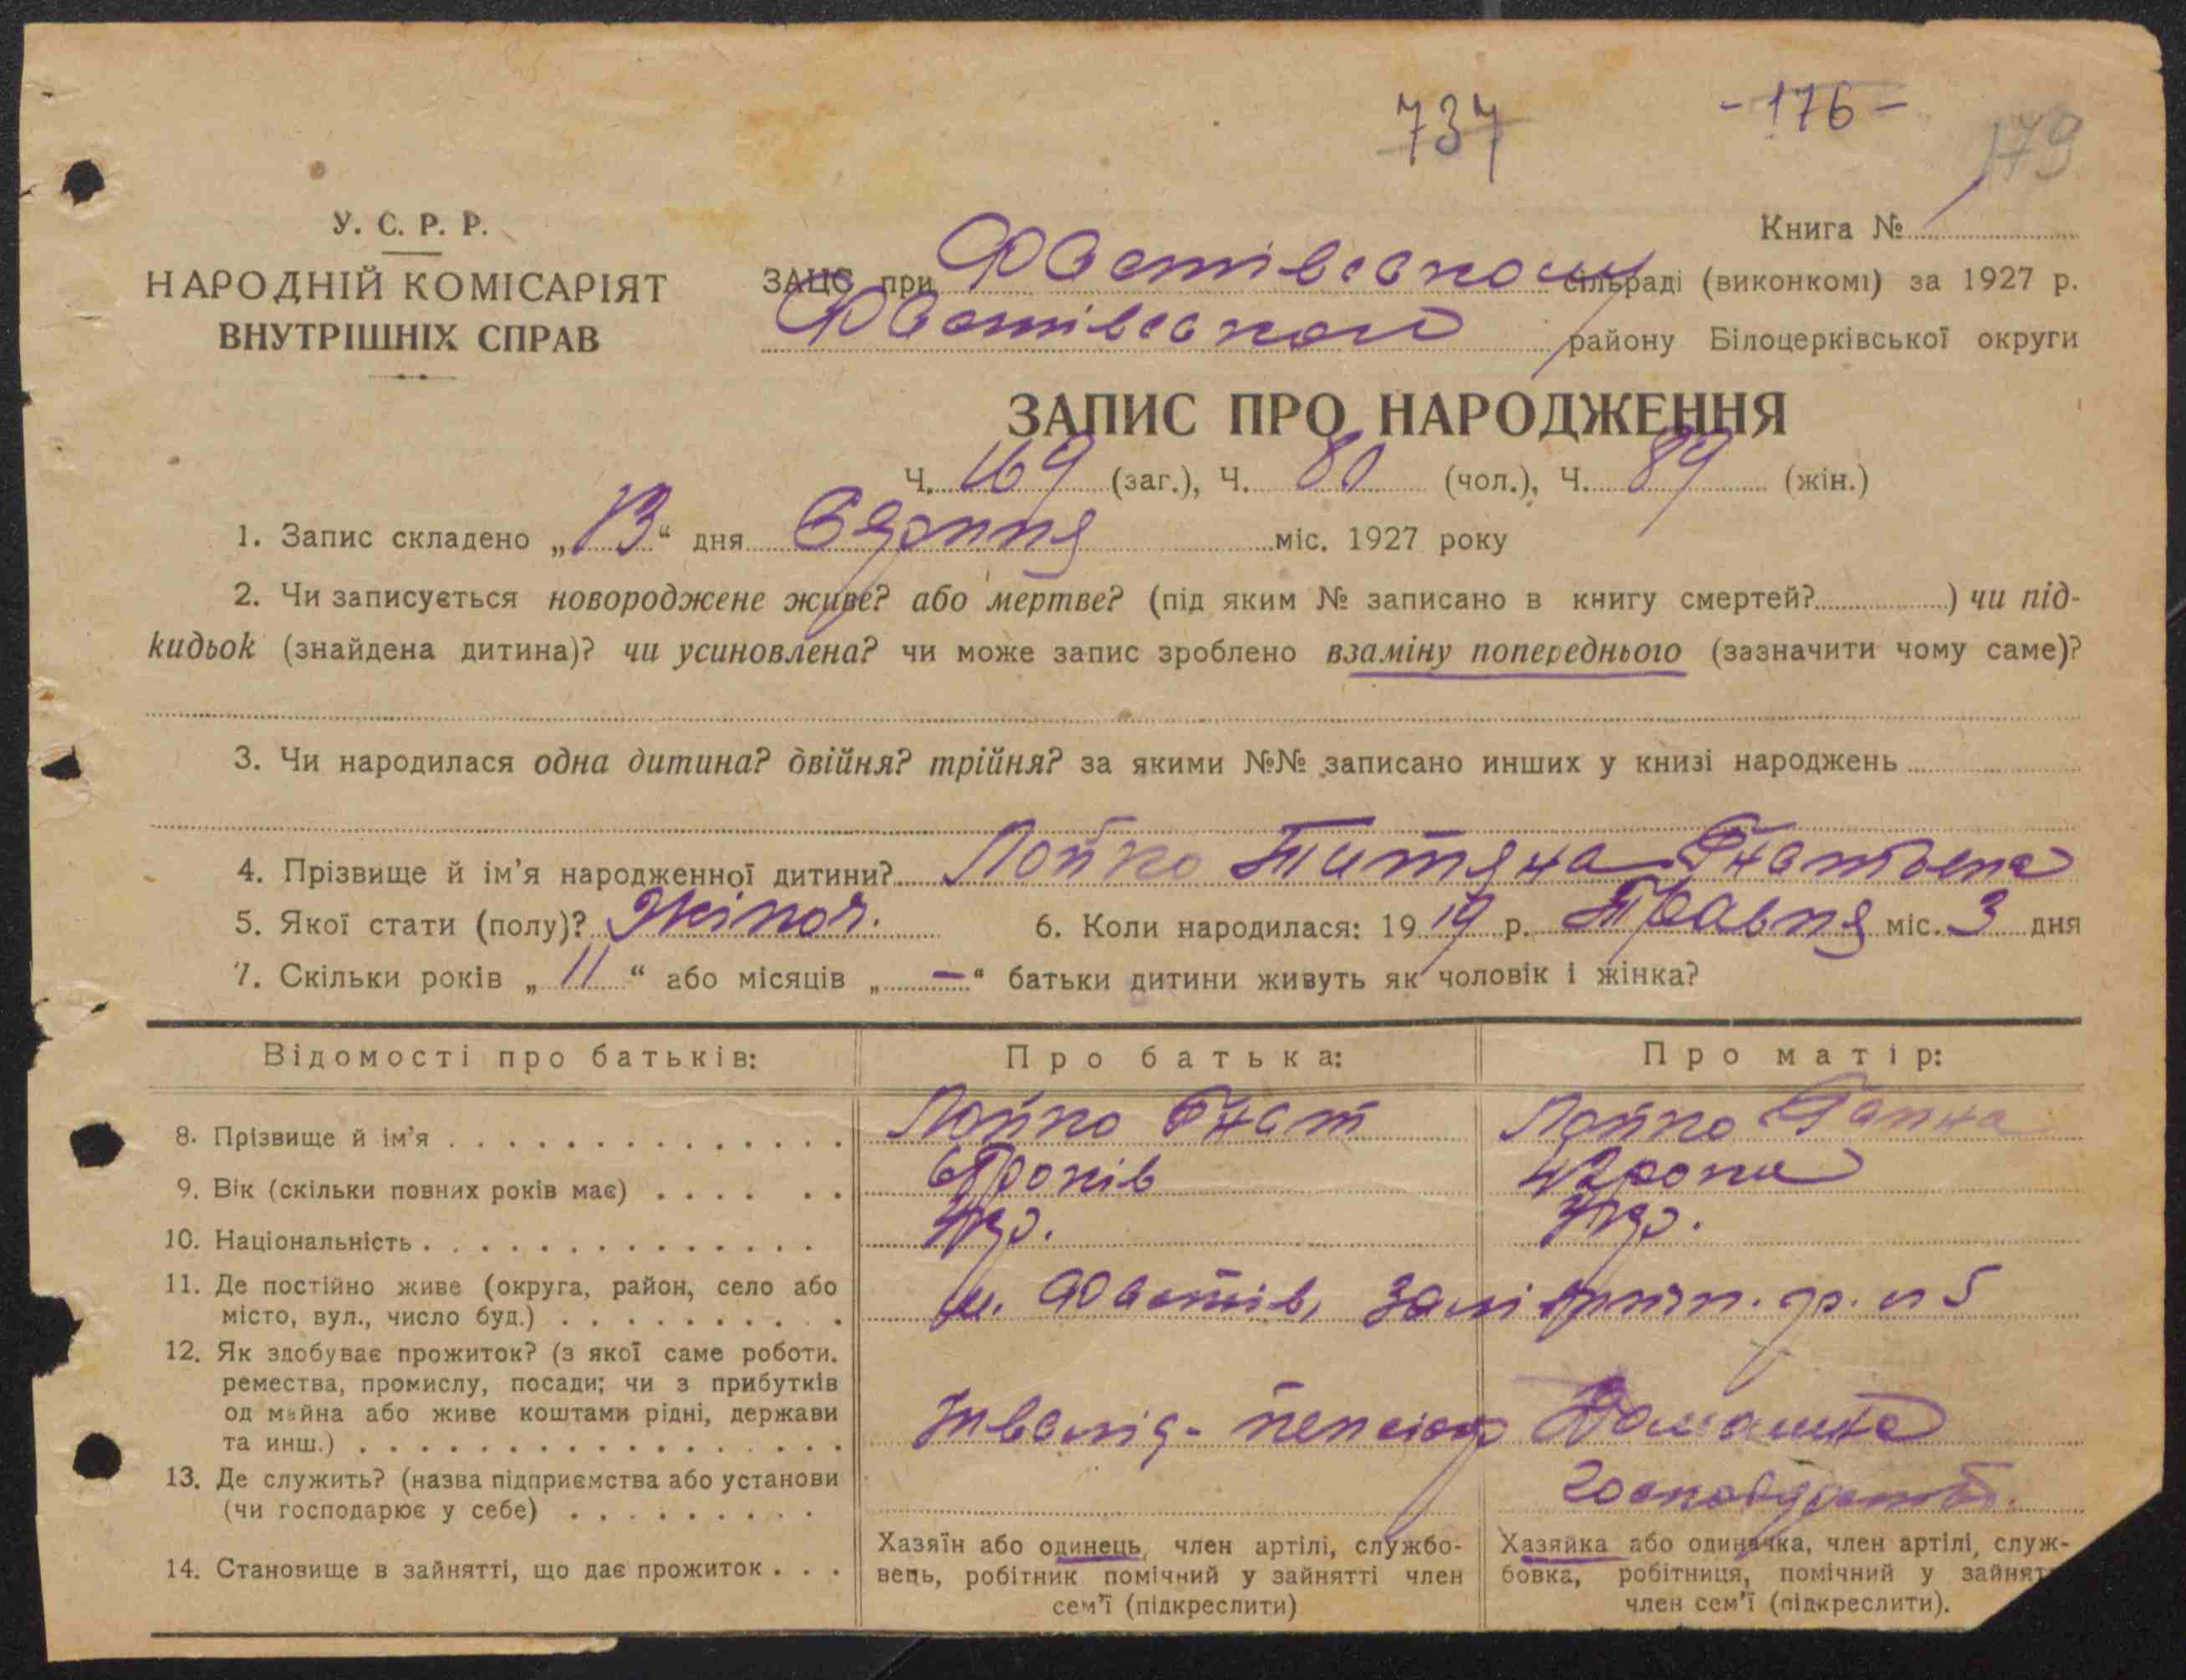 737 -176- 179
У. С. Р. Р.
НАРОДНІЙ КОМІСАРІЯТ
ВНУТРІШНІХ СПРАВ
Книга № 1
ЗАЦС при Фастівському сільраді (виконкомі) за 1927 р.
Фастівського району Білоцерківської округи
ЗАПИС ПРО НАРОДЖЕННЯ
Ч. 169 (заг.), Ч. 80 (чол.), Ч. 89 (жін.)
1. Запис складено „13“ дня Серпня міс. 1927 року
2. Чи записується новороджене живе? або мертве? (під яким № записано в книгу смертей? ) чи під-
кидьок (знайдена дитина)? чи усиновлена? чи може запис зроблено взаміну попереднього (зазначити чому саме)?
3. Чи народилася одна дитина? двійня? трійня? за якими №№ записано инших у книзі народжень
4. Прізвище й ім'я народженної дитини? Лойко Титяна Гнатьена
5. Якої стати (полу)? Жіноч. 6. Коли народилася: 1919 р. Травня міс. 3 дня
7. Скільки років „11“ або місяців „—“ батьки дитини живуть як чоловік і жінка?
Відомості про батьків: Про батька: Про матір:
8. Прізвище й ім'я Лойко Гнат Лойко Ганна
9. Вік (скільки повних років має) років 42 роки
10. Національність Укр. Укр.
11. Де постійно живе (округа, район, село або
місто, вул., число буд.) м. Фастів, 5
12. Як здобуває прожиток? (з якої саме роботи.
ремества, промислу, посади; чи з прибутків
од майна або живе коштами рідні, держави
та инш.) Інвалід-пенсіон Домашнє
13. Де служить? (назва підприємства або установи
(чи господарює у себе) господарств.
14. Становище в зайнятті, що дає прожиток
Хазяїн або одинець, член артілі, службо-
вець, робітник помічний у зайнятті член
сем'ї (підкреслити)
Хазяйка або одиначка, член артілі, служ-
бовка, робітниця, помічний у зайнят
член сем'ї (підкреслити).